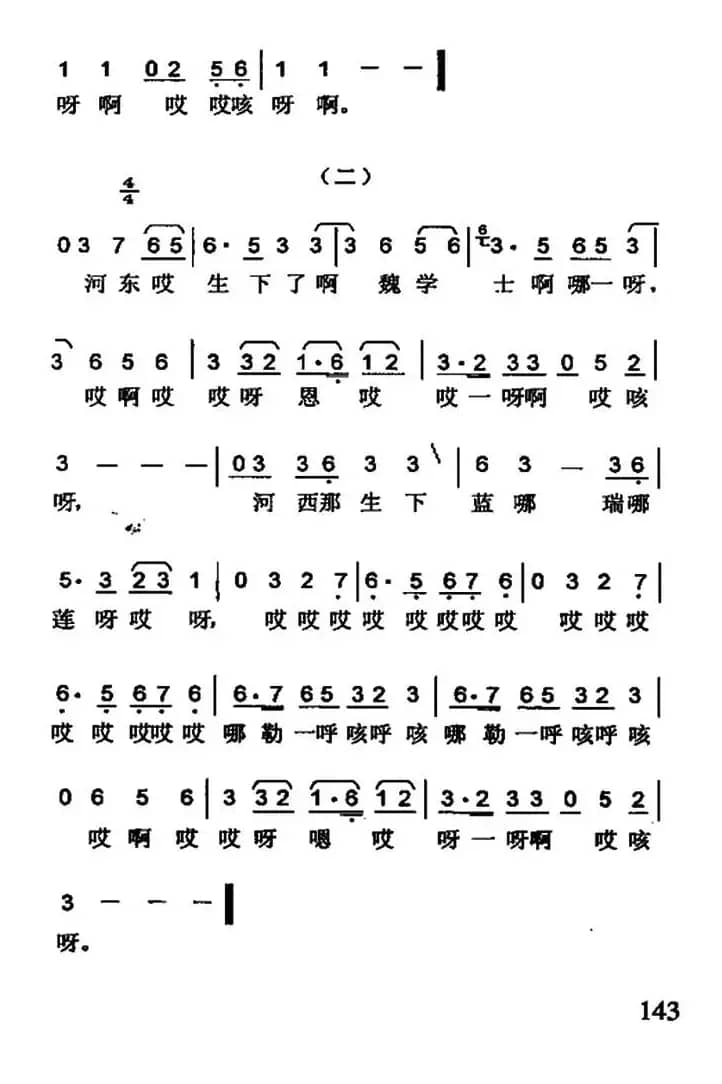 1 1 02 56 | 1 1 — —
呀 啊 哎 哎咳 呀 啊。
（二）
4/4
0 3 7 65 | 6· 5 3 3 | 3 6 5 6 | 6 3· 5 65 3 |
河 东 哎 生 下 了 啊 魏 学 士 啊 哪 一 呀，
3 6 5 6 | 3 32 1·6 12 | 3·2 33 0 5 2 |
哎 啊 哎 哎 呀 恩 哎 哎 一 呀啊 哎 咳
3 — — — | 03 36 3 3 | 6 3 — 36 |
呀， 河 西那 生 下 蓝 哪 瑞哪
5· 3 23 1 | 0 3 2 7 | 6· 5 67 6 | 0 3 2 7 |
莲 呀 哎 呀， 哎 哎 哎 哎 哎哎 哎 哎 哎 哎
6· 5 67 6 | 6·7 65 32 3 | 6·7 65 32 3 |
哎 哎 哎哎 哎 哪 勒 一呼 咳呼 咳 哪 勒 一呼 咳呼 咳
0 6 5 6 | 3 32 1·6 12 | 3·2 33 0 5 2 |
哎 啊 哎 哎 呀 嗯 哎 呀 一 呀啊 哎 咳
3 — — —
呀。
143